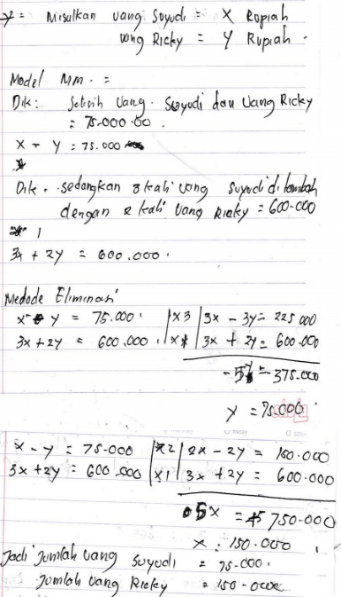 Misalkan uang Suyudi = X Rupiah
uang Ricky = Y Rupiah.
Model Mm. =
Dik: Selisih Uang Suyudi dan Uang Ricky
= 75.000.00.
X - Y = 75.000
Dik. sedangkan 3 kali uang Suyudi ditambah
dengan 2 kali Uang Ricky = 600.000
3x + 2y = 600.000.
Medode Eliminasi
x - y = 75.000. | x3 | 3x - 3y = 225 000
3x + 2y = 600.000. | x1 | 3x + 2y = 600.000
-5y = -375.000
y = 75.000
x - y = 75.000 | x2 | 2x - 2y = 150.000
3x + 2y = 600.000 | x1 | 3x + 2y = 600.000
5x = 750.000
x = 150.000
Jadi Jumlah uang Suyudi = 75.000.
Jumlah uang Ricky = 150.000